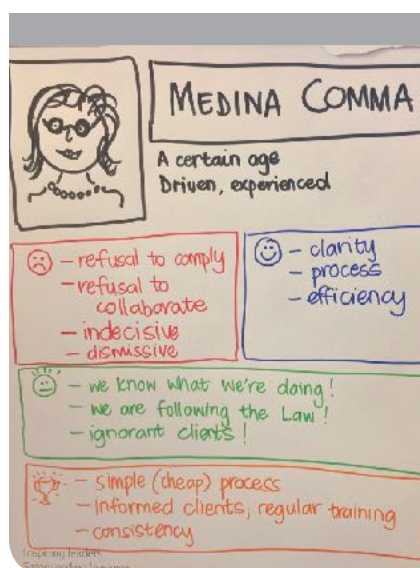 MEDINA COMMA
A certain age
Driven, experienced
- refusal to comply
- refusal to
collaborate
- indecisive
- dismissive
- clarity
- process
- efficiency
- we know what we're doing!
- we are following the Law!
- ignorant clients!
- simple (cheap) process
- informed clients, regular training
- consistency
Inspiring leaders